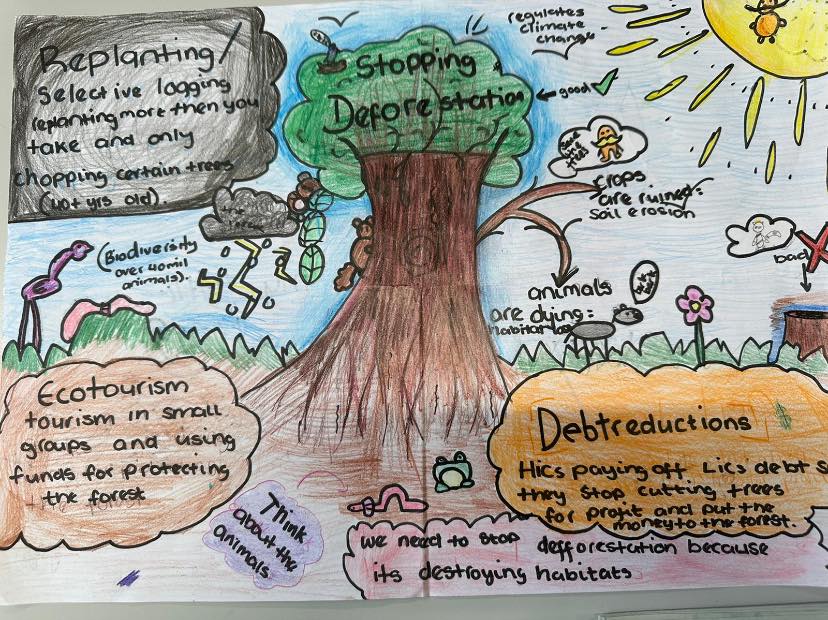 Replanting/
Selective logging
replanting more then you
take and only
chopping certain trees
(40+ yrs old).
Stopping
Deforestation
regulates
climate
change
good
crops
are ruined:
soil erosion
(Biodiversity
over 40mil
animals).
bad
animals
are dying:
Ecotourism
tourism in small
groups and using
funds for protecting
the forest
Debtreductions
Hics paying off Lics debt s
they stop cutting trees
for profit and put the
money to the forest.
Think
about the
animals
we need to stop defforestation because
its destroying habitats